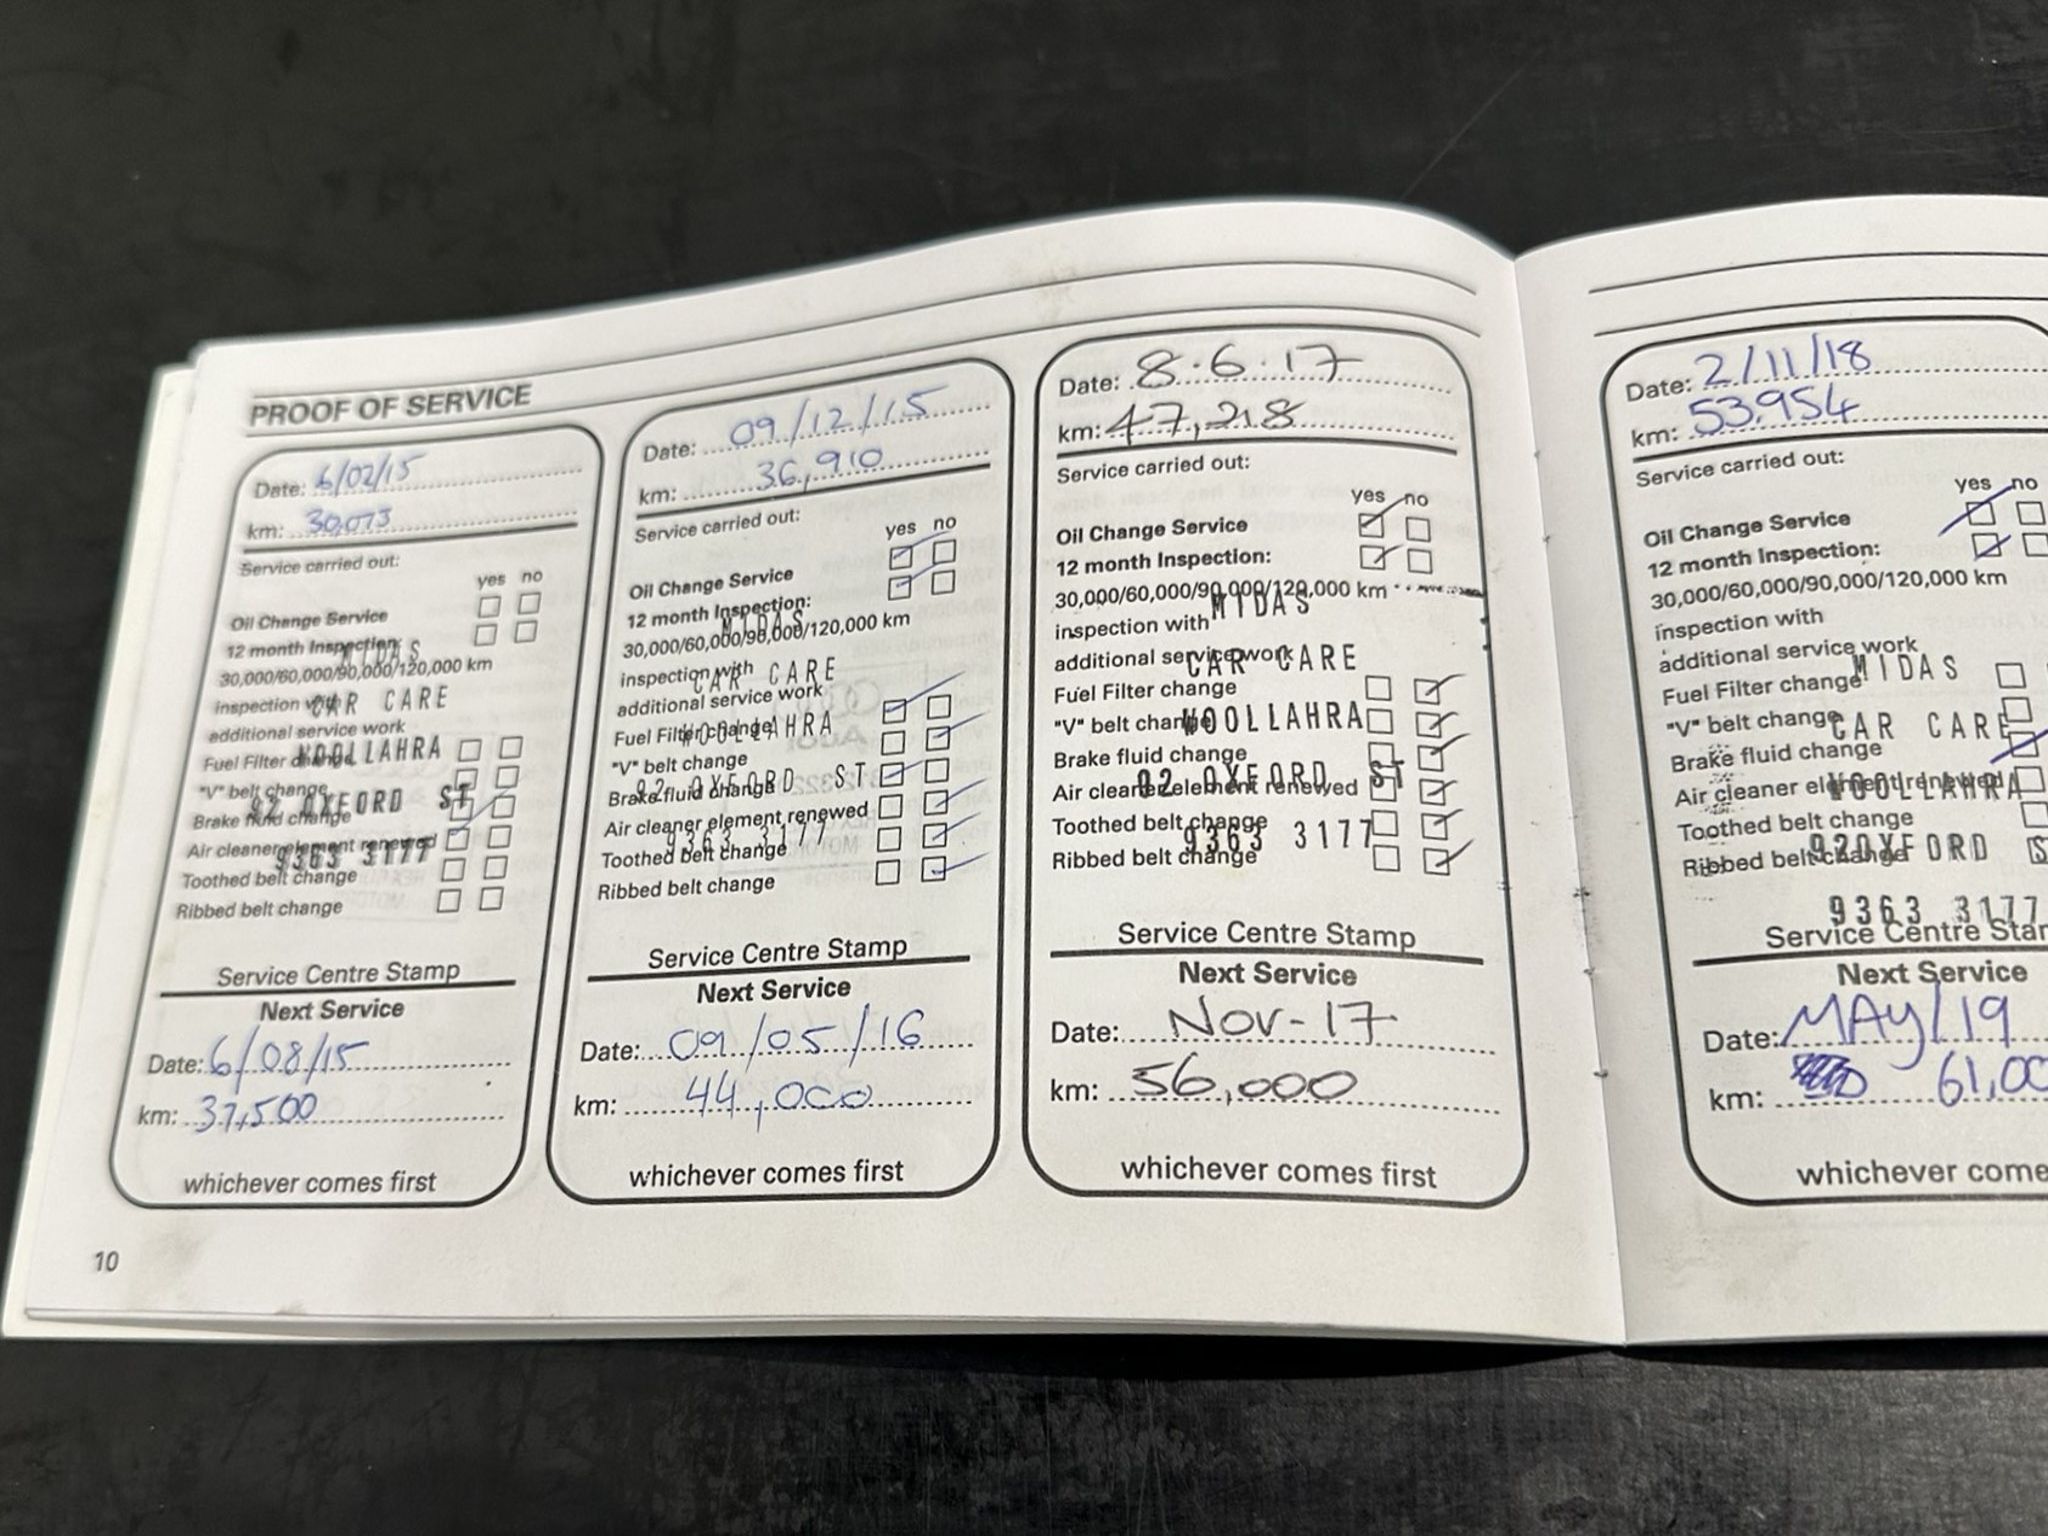 PROOF OF SERVICE
Date: 6/02/15
km: 30,073
Service carried out:
yes no
Oil Change Service
12 month Inspection:
MIDAS
30,000/60,000/90,000/120,000 km
inspection with
CAR CARE
additional service work
WOOLLAHRA
Fuel Filter change
"V" belt change
92 OXFORD ST
Brake fluid change
Air cleaner element renewed
9363 3177
Toothed belt change
Ribbed belt change
Service Centre Stamp
Next Service
Date: 6/08/15
km: 37,500
whichever comes first
10
Date: 09/12/15
km: 36,910
Service carried out:
yes no
Oil Change Service
12 month Inspection:
MIDAS
30,000/60,000/90,000/120,000 km
inspection with
CAR CARE
additional service work
Fuel Filter change
WOOLLAHRA
"V" belt change
92 OXFORD ST
Brake fluid change
Air cleaner element renewed
9363 3177
Toothed belt change
Ribbed belt change
Service Centre Stamp
Next Service
Date: 09/05/16
km: 44,000
whichever comes first
Date: 8.6.17
km: 47,218
Service carried out:
yes no
Oil Change Service
12 month Inspection:
30,000/60,000/90,000/120,000 km
MIDAS
inspection with
additional service work
CAR CARE
Fuel Filter change
"V" belt change
WOOLLAHRA
Brake fluid change
92 OXFORD ST
Air cleaner element renewed
Toothed belt change
9363 3177
Ribbed belt change
Service Centre Stamp
Next Service
Date: Nov-17
km: 56,000
whichever comes first
Date: 2/11/18
km: 53,954
Service carried out:
yes no
Oil Change Service
12 month Inspection:
30,000/60,000/90,000/120,000 km
inspection with
additional service work
MIDAS
Fuel Filter change
"V" belt change
CAR CARE
Brake fluid change
Air cleaner element renewed
WOOLLAHRA
Toothed belt change
92OXFORD
Ribbed belt change
9363 3177
Service Centre
Next Service
Date: MAY/19
km: 61,00
whichever come